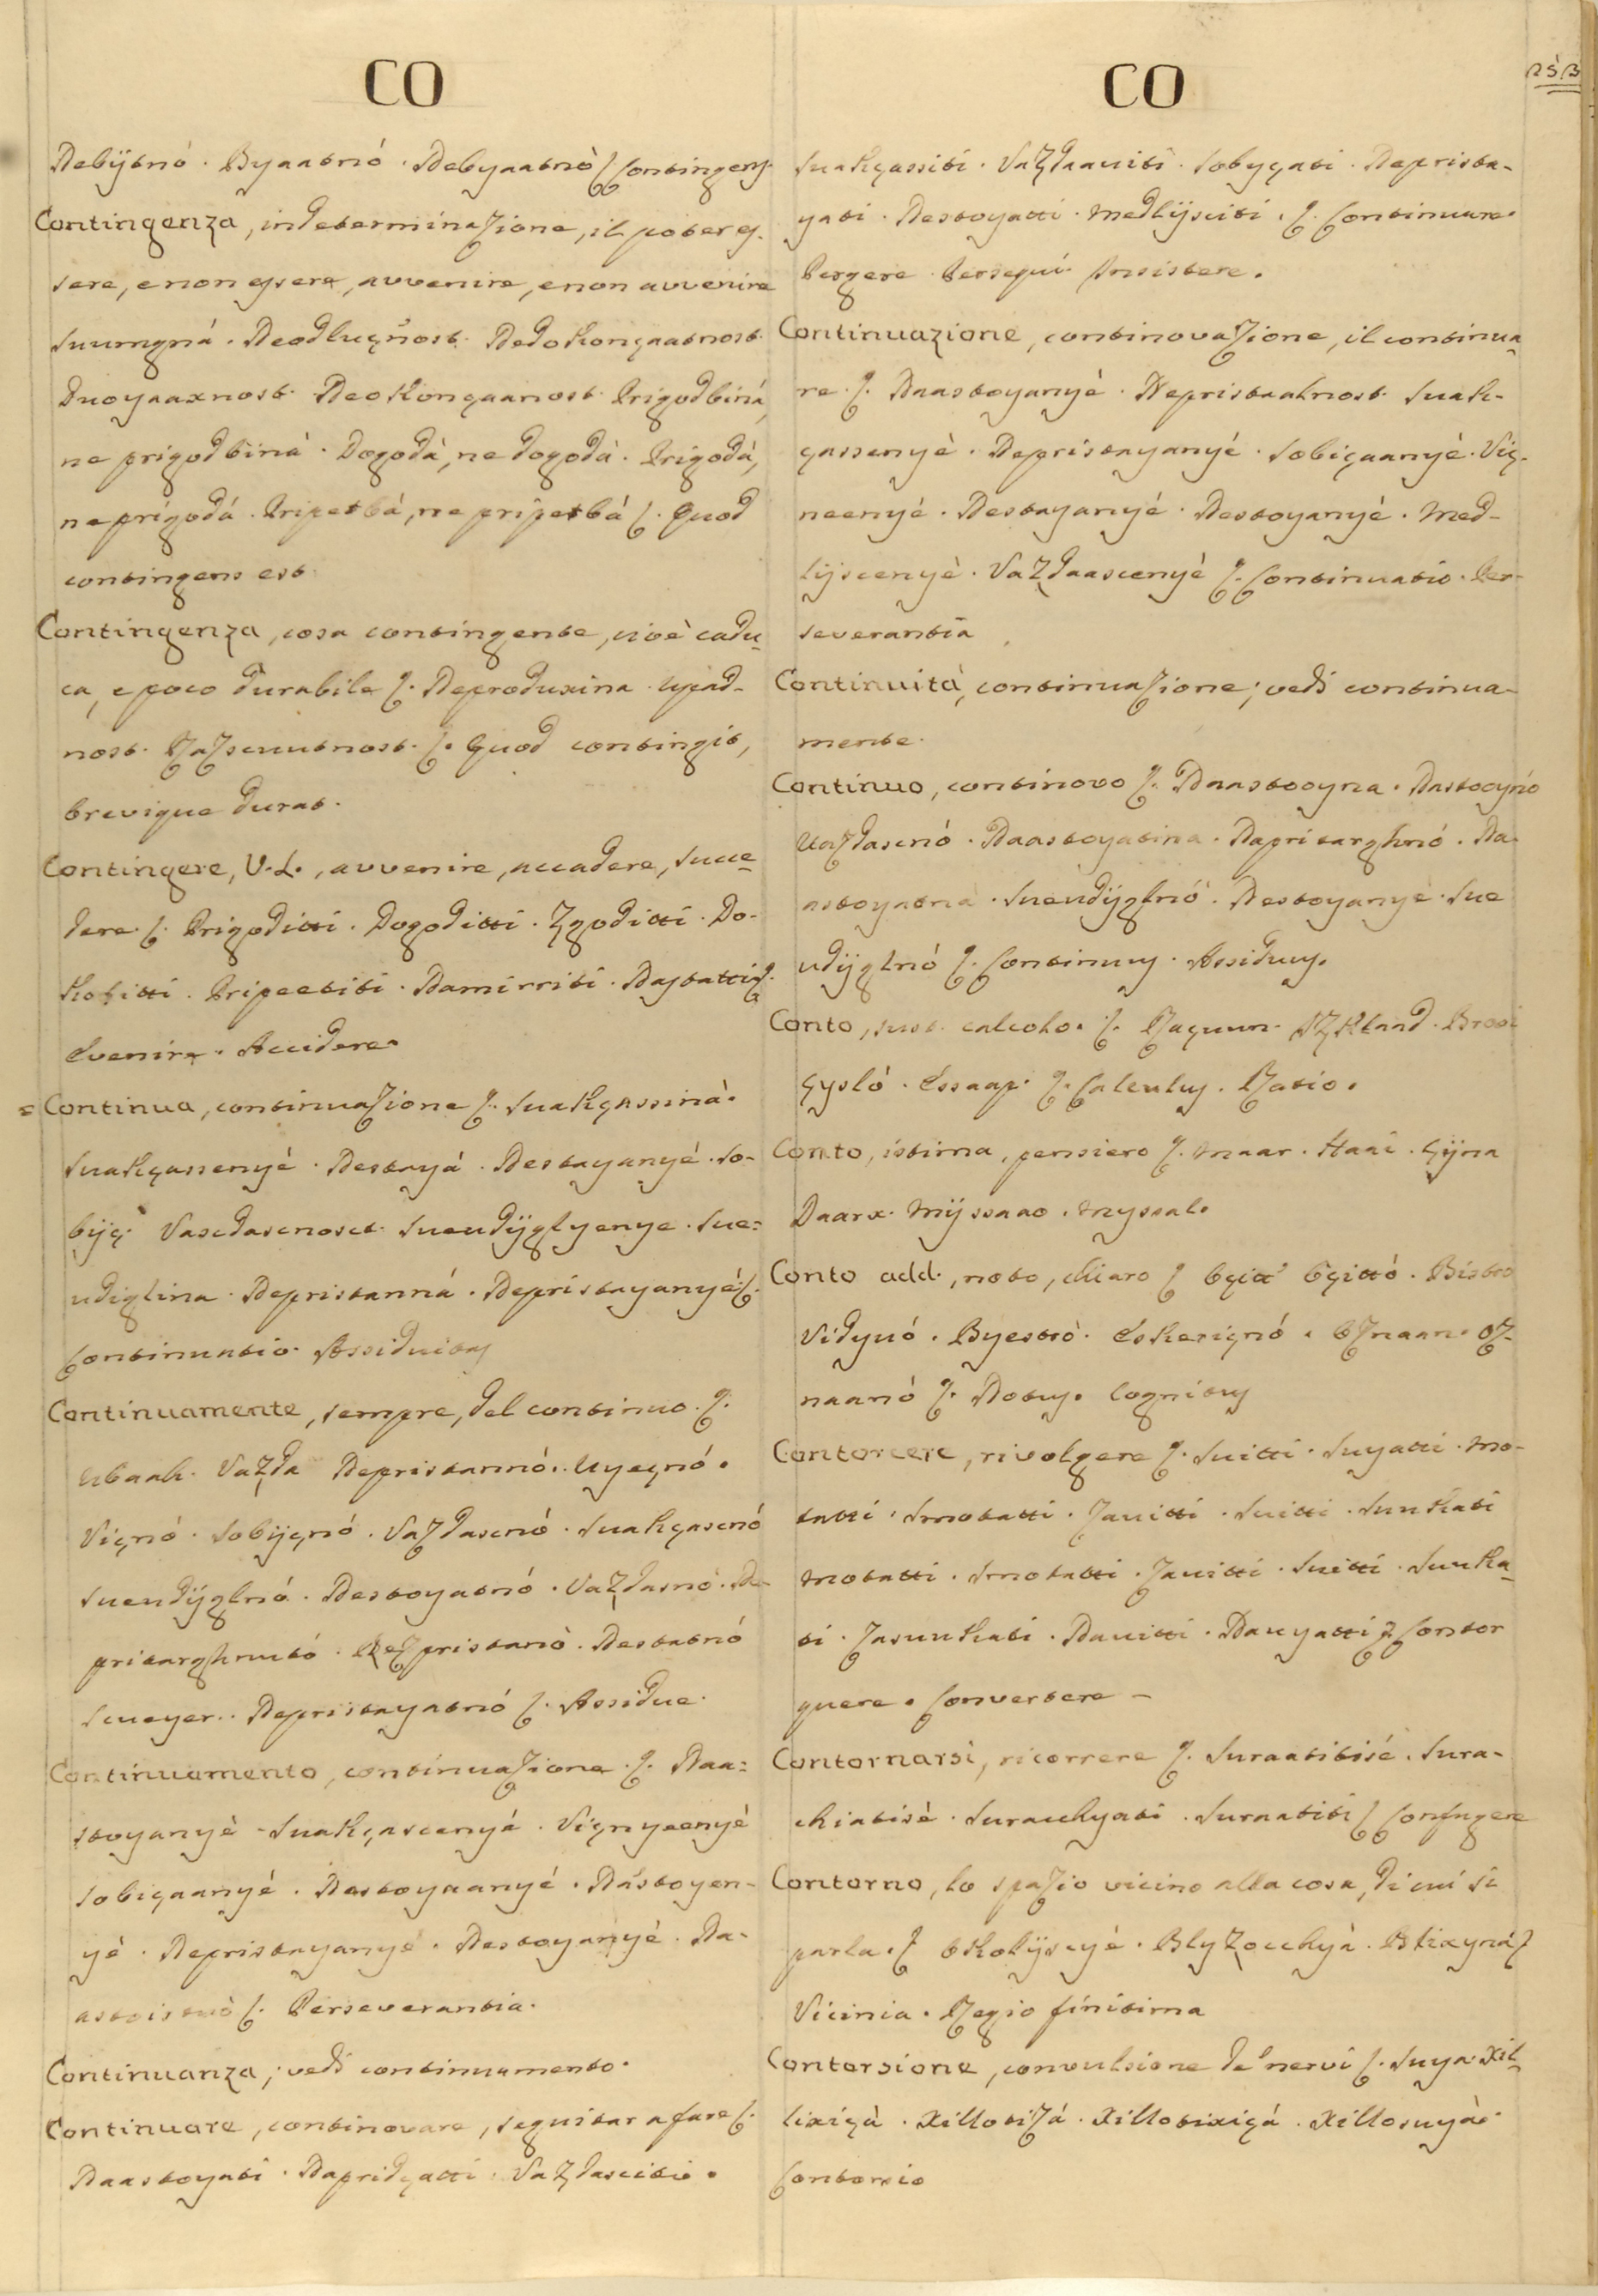 CO
Nebÿtnó. Byaatnó. Nebyaatnò ſ Contingens.
Contingenza, indeterminazione, il poter es-
sere, e non essere, avvenire, e non avvenire
Neodlucçnost. Nedokonçaatnost.
Neokonçaanost. Prigodbinà,
ne prigodbinà. Dogodà, ne dogodà. Prigodà,
ne prigodá. Pripetbà, ne pripetbà ſ. Quod
contingens est.
Contingenza, cosa contingente, cioè cadu-
ca, e poco durabile ſ. Neproduxina. Upad-
nost. Razscuutnost. ſ. Quod contingit,
brevique durat.
Contingere, V.L., avvenire, accadere, succe-
dere ſ. Prigoditti. Dogoditti. Zgoditti. Do-
Kobitti. Pripeetiti. Namirriti. Nastatti ſ.
Evenire. Accidere.
Continua, continuazione ſ. Suakçassinà.
Suakçassenyè. Nestayá. Nestayanyé. So-
bÿç. Vascdascnosct. Sueudÿglyenye. Sue-
udiglina. Nepristanná. Nepristayanyé ſ.
Continuatio. Assiduitas
Continuamente, sempre, del continuo. ſ.
Ubaah. Vazda Nepristannó. Uyeçnó.
Viçnó. Sobÿçnó. Vazdascnó. Suakçascnó
Sueudÿglnó. Nestoyatnó. Vazdasnó. Ne-
pritarghnutó. Nezpristanò. Nestatnó
Scueyer. Nepristayatnó ſ. Assidue.
Continuamento, continuazione. ſ. Naa-
stoyanyè. Suakçascenyá. Viçnyeenyè
Sobiçaanyé. Nastoyaanyé. Nástoyen-
yè. Nepristayanyé. Nestoyanyé. Na-
astoistuò ſ. Perseverantia.
Continuanza; vedi continuamento.
Continuare, continovare, seguitar a fare ſ.
Naastoyati. Napridçatti. Vazdasciti.
CO
253
Suakçassiti. Vazdaauiti. Sobyçati. Neprista-
yati. Nestoyatti. Medlÿsciti. ſ. Continuare.
Pergere. Persequi. Insistere.
Continuazione, continovazione, il continua-
re. ſ. Naastoyanyè. Nepristaatnost. Suak-
çassenyè. Nepristayanyé. Sobiçaanyé. Viç-
neenyé. Nestayanyé. Nestoyanyé. Med-
lÿscenyè. Vazdaascenyè ſ. Continuatio. Per-
severantia
Continuità, continuazione; vedi continua-
mente.
Continuo, continovo ſ. Naastooyna. Nastooynó
Uazdascnó. Naastoyatina. Napritarghnó. Na-
astoyatna. Sueudÿglnó. Nestoyanye. Sue
udÿglnó ſ. Continuus. Assiduus.
Conto, sust. calcolo. ſ. Raçuun. Brooi
Çysló. Essaap. ſ. Calculus. Ratio.
Conto, istima, pensiero ſ. Maar. Haai. Çÿna
Daarx. Mÿssaao. Myssal.
Conto add., noto, chiaro ſ Oçitt Oçittó. Bistro
Vidyuó. Byestrò. Eskeriçnó. Oznaan. Oz-
naanó ſ. Notus. Cognitus
Contorcere, rivolgere ſ. Suitti. Suyatti. Mo-
tatti. Smotatti. Zauitti. Suitti. Suukati
Motatti. Smotatti. Zauitti. Suitti. Suuka-
ti. Zasuukati. Nauitti. Nauyatti ſ Contor
quere. Convertere –
Contornarsi, ricorrere ſ. Suraatitisé. Sura-
chiatisè. Surachyati. Suraatiti ſ Confugere
Contorno, lo spazio vicino alla cosa, di cui si
parla. ſ Okolÿscyè. Blyzocchyà. Blixynà ſ
Vicinia. Regio finitima
Contorsione, convulsione de' nervi ſ. Suya Xil-
lixiçà. Xillotizá. Xillotixiçá. Xillosuyà.
Contorsio